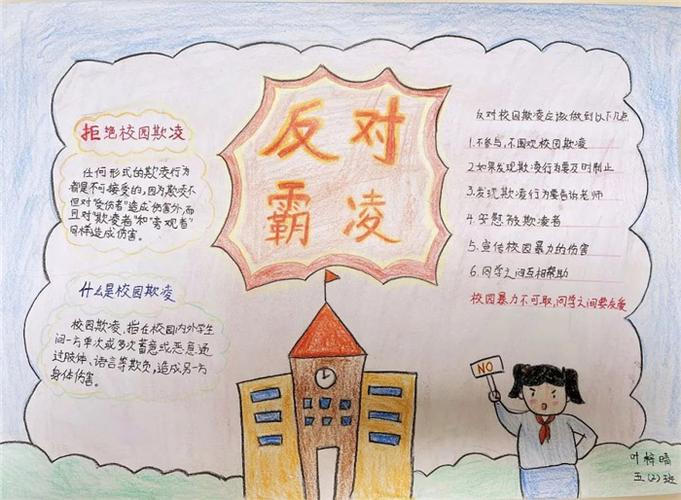 反对
霸凌
拒绝校园欺凌
任何形式的欺凌行为
都是不可接受的,因为欺凌不
但对“受伤者”造成伤害外,而
且对“欺凌者”和“旁观者”
同样造成伤害。
什么是校园欺凌
校园欺凌,指在校园内外学生
间一方单次或多次蓄意或恶意通
过肢体、语言等欺负,造成另一方
身体伤害。
反对校园欺凌应该做到以下几点
1.不参与,不围观校园欺凌
2.如果发现欺凌行为要及时制止
3.发现欺凌行为要告诉老师
4.安慰被欺凌者
5.宣传校园暴力的伤害
6.同学之间互相帮助
校园暴力不可取,同学之间要友爱
NO
叶梓晴
五(2)班